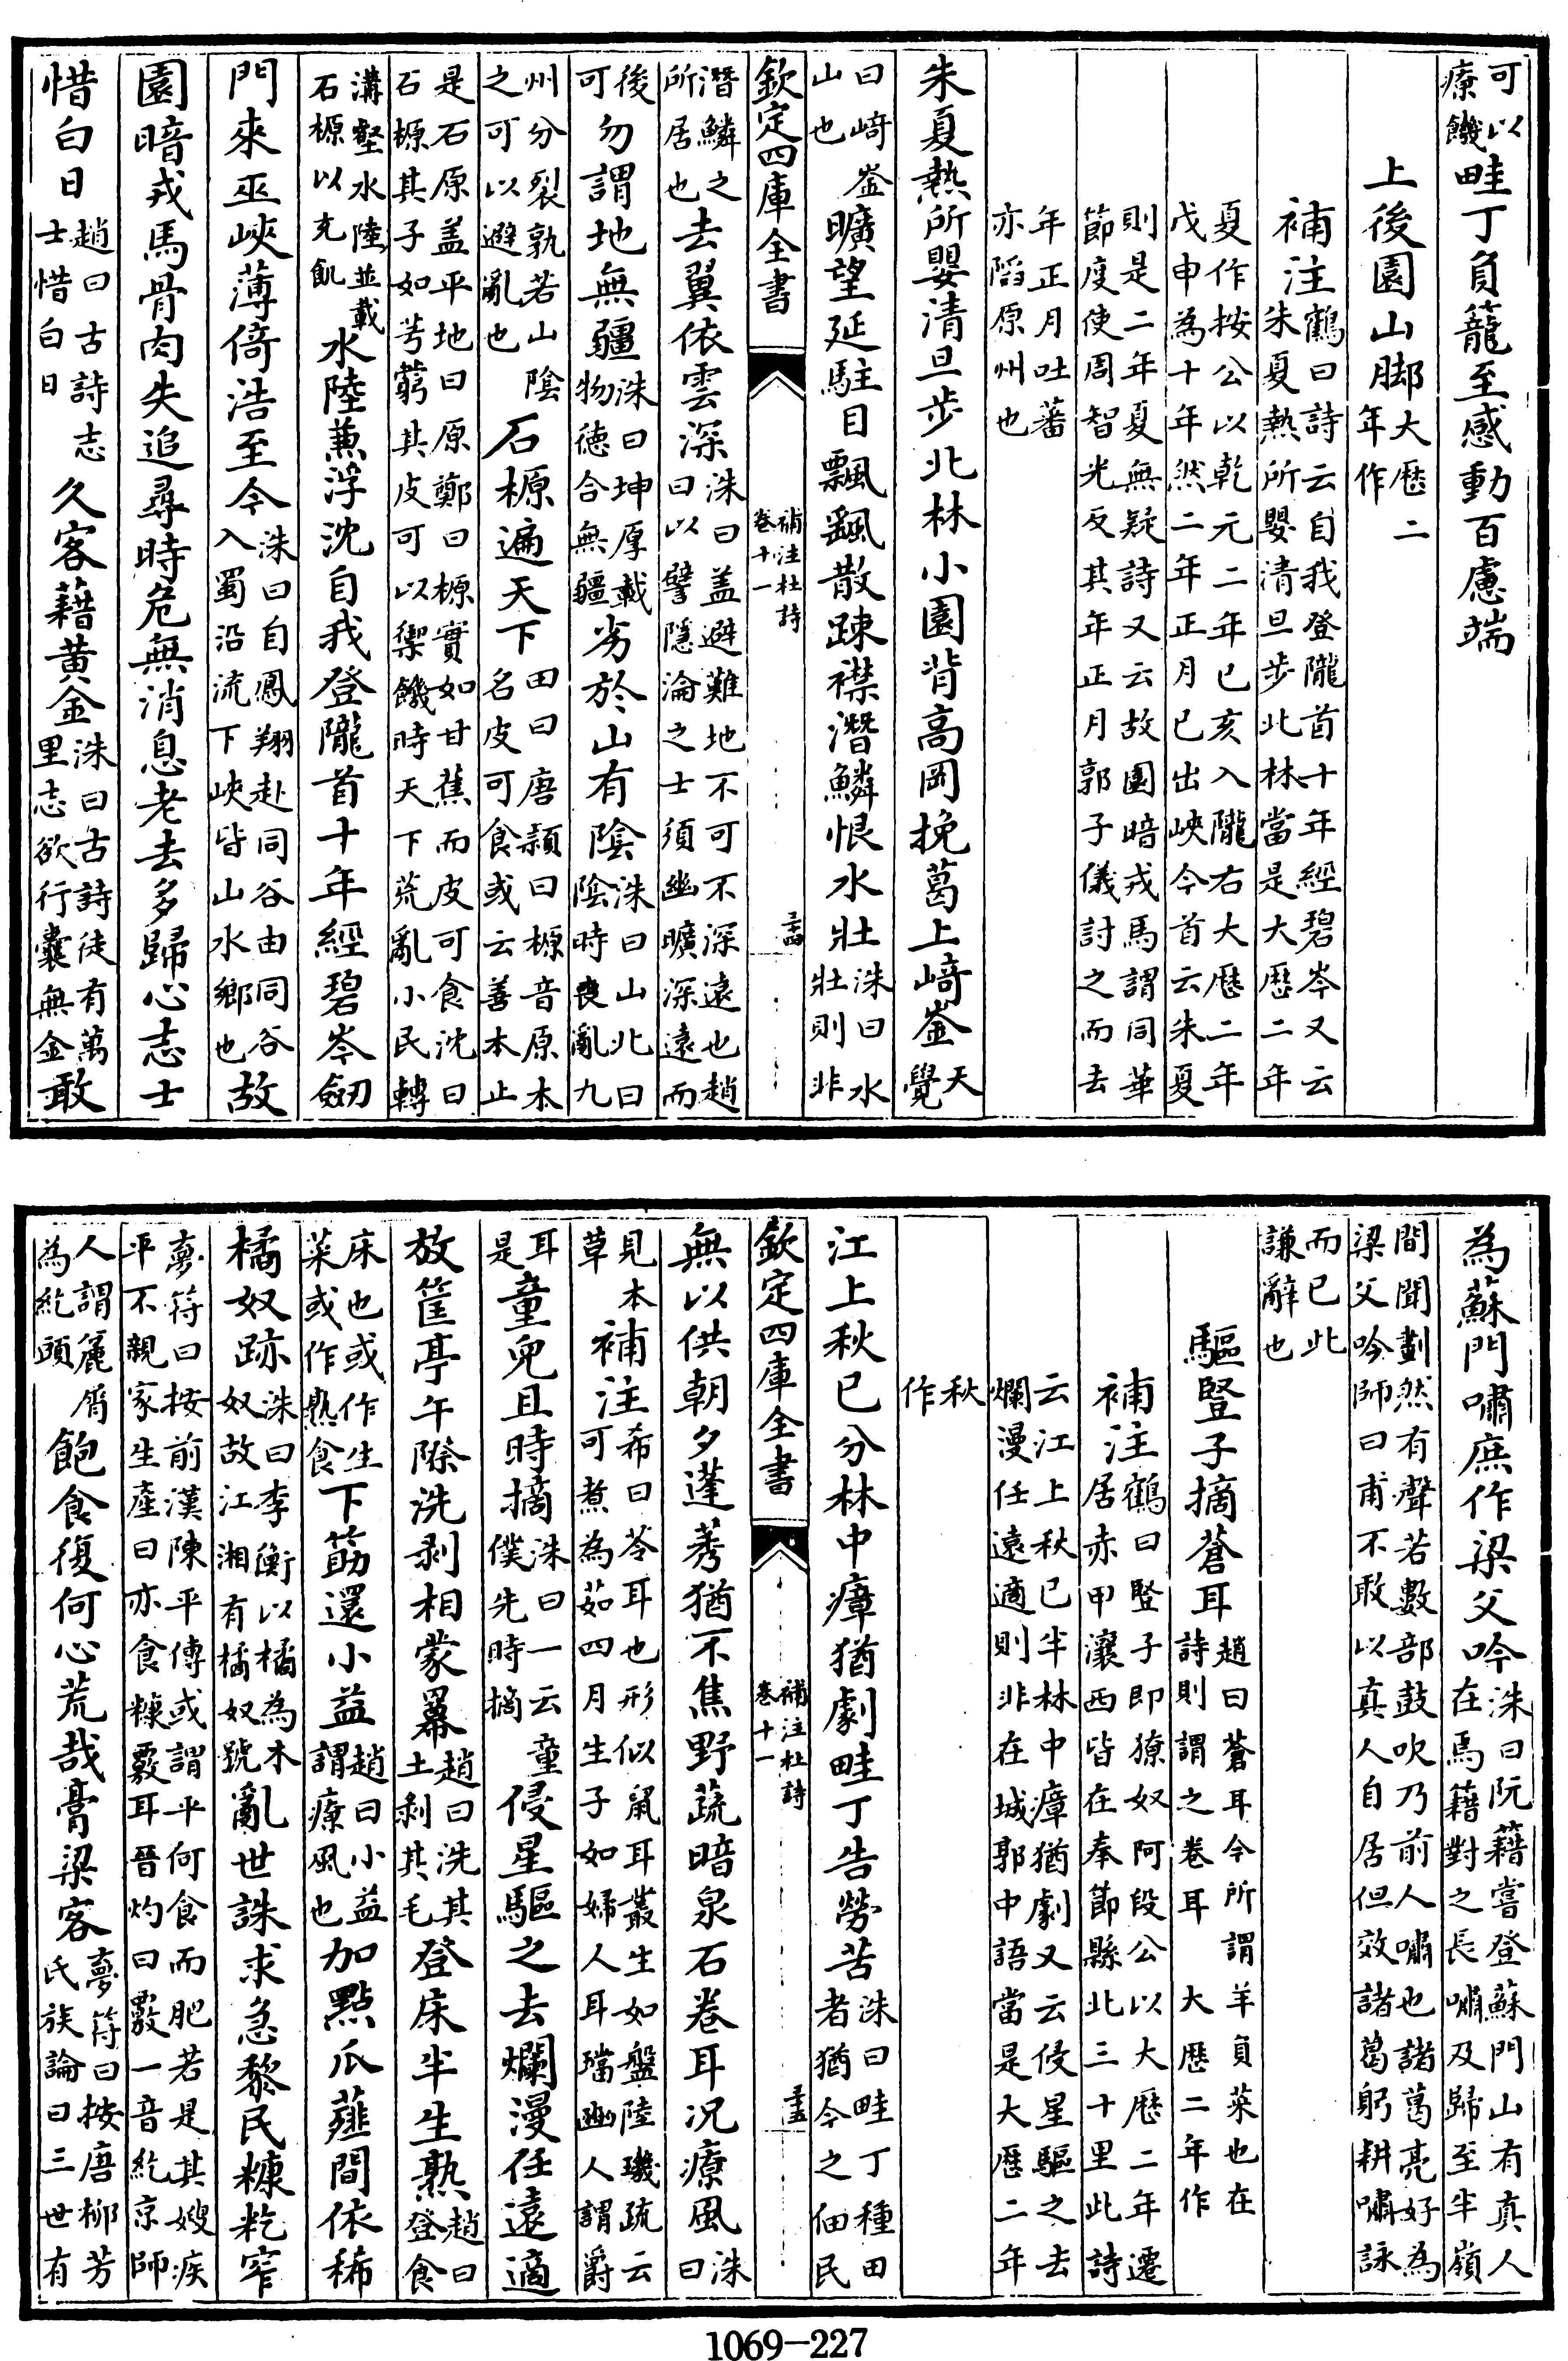 可以療饑畦丁負籠至感動百慮端
上後園山脚大厯二年作
補注鶴曰詩云自我登隴首十年經碧岑又云朱夏熱所嬰清旦步北林當是大厯二年
夏作按公以乾元二年已亥入隴右大厯二年戊申為十年然二年正月已出峽今首云朱夏
則是二年夏無疑詩又云故園暗戎馬謂同華節度使周智光反其年正月郭子儀討之而去
年正月吐蕃亦䧟原州也
朱夏熱所嬰清旦步北林小園背高岡挽葛上崎崟天覺
曰崎崟山也曠望延駐目飄颻散踈襟潛鱗恨水壯洙曰水壯則非
欽定四庫全書 補注杜詩卷十一 二十四
潛鱗之所居也去翼依雲深洙曰盖避難地不可不深遠也趙曰以譬隱淪之士須幽曠深遠而
後可勿謂地無疆洙曰坤厚載物徳合無疆劣於山有陰洙曰山北曰陰時喪亂九
州分裂孰若山陰之可以避亂也石榞遍天下田曰唐頴曰榞音原木名皮可食或云善本止
是石原盖平地曰原鄭曰榞實如甘蕉而皮可食沈曰石榞其子如芎藭其皮可以禦饑時天下荒亂小民轉
溝壑水陸並載石榞以充飢水陸兼浮沈自我登隴首十年經碧岑劒
門來巫峽薄倚浩至今洙曰自鳳翔赴同谷由同谷入蜀沿流下峽皆山水鄉也故
園暗戎馬骨肉失追尋時危無消息老去多歸心志士
惜白日趙曰古詩志士惜白日久客藉黄金洙曰古詩徒有萬里志欲行囊無金敢
為蘇門嘯庶作梁父吟洙曰阮籍嘗登蘇門山有真人在焉籍對之長嘯及歸至半嶺
間聞劃然有聲若數部鼓吹乃前人嘯也諸葛亮好為梁父吟師曰甫不敢以真人自居但效諸葛躬耕嘯詠
而已此謙辭也
驅豎子摘蒼耳趙曰蒼耳今所謂羊負菜也在詩則謂之卷耳 大厯二年作
補注鶴曰豎子即獠奴阿段公以大厯二年遷居赤甲瀼西皆在奉節縣北三十里此詩
云江上秋已半林中瘴猶劇又云侵星驅之去爛漫任遠適則非在城郭中語當是大厯二年
秋作
江上秋已分林中瘴猶劇畦丁告勞苦洙曰畦丁種田者猶今之佃民
欽定四庫全書 補注杜詩卷十一 二十五
無以供朝夕蓬莠猶不焦野蔬暗泉石卷耳况療風洙曰
見本草補注希曰苓耳也形似鼠耳叢生如盤陸璣疏云可煮為茹四月生子如婦人耳璫幽人謂爵
耳是童兒且時摘洙曰一云童僕先時摘侵星驅之去爛漫任遠適
放筐亭午際洗剥相蒙羃趙曰洗其土剥其毛登床半生熟趙曰登食
床也或作生菜或作熟食下筯還小益趙曰小益謂療風也加點瓜薤間依稀
橘奴跡洙曰李衡以橘為木奴故江湘有橘奴號亂世誅求急黎民糠籺窄
夢符曰按前漢陳平傳或謂平何食而肥若是其嫂疾平不親家生産曰亦食糠覈耳晉灼曰覈一音紇京師
人謂麄屑為紇頭飽食復何心荒哉膏梁客夢符曰按唐柳芳氏族論曰三世有
1069-227